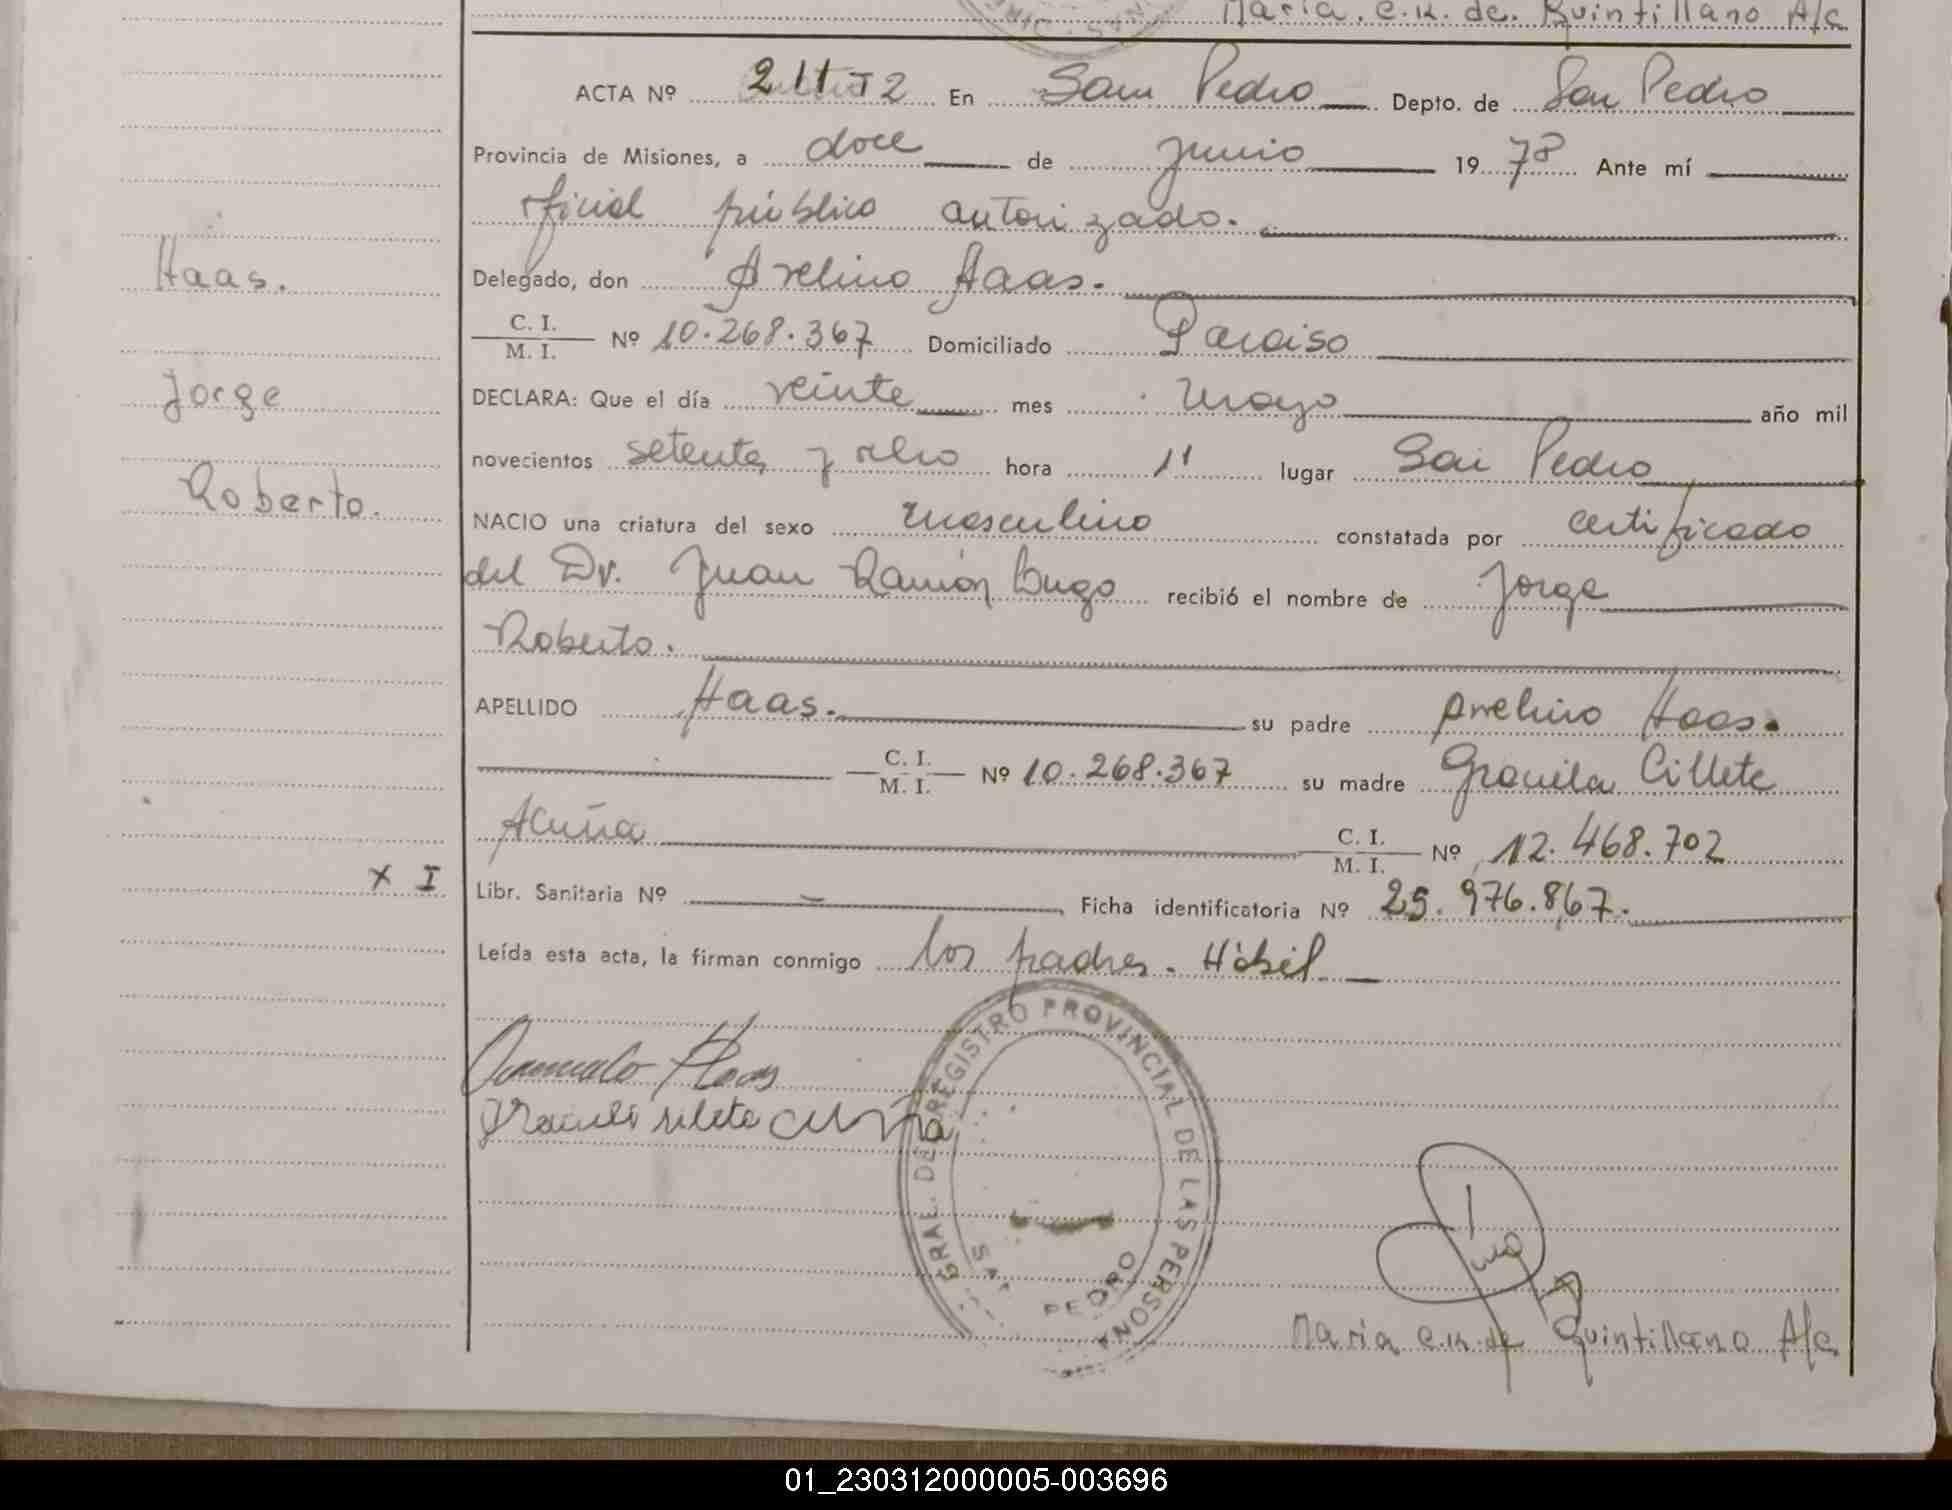 Maria. C.K. de. Quintillano A/c
ACTA Nº 211 T2 En San Pedro Depto. de San Pedro
Provincia de Misiones, a doce de junio 1978 Ante mí
oficial público autorizado.
Haas.
Delegado, don Avelino Haas.
C. I.
M. I. Nº 10.268.367 Domiciliado Paraiso
Jorge
DECLARA: Que el día veinte mes mayo año mil
novecientos setenta y ocho hora 11 lugar San Pedro
Roberto.
NACIO una criatura del sexo masculino constatada por certificado
del Dr. Juan Ramón Lugo recibió el nombre de Jorge
Roberto.
APELLIDO Haas. su padre Avelino Haas.
C. I.
M. I. Nº 10.268.367 su madre Graciela Cillete
Acuña C. I.
M. I. Nº 12.468.702
X I
Libr. Sanitaria Nº — Ficha identificatoria Nº 25.976.867.
Leída esta acta, la firman conmigo los padres. Hábil
Haas
GRAL. DEL REGISTRO PROVINCIAL DE LAS PERSONA
SAN PEDRO
Maria C.K. de Quintillano A/c
01_230312000005-003696